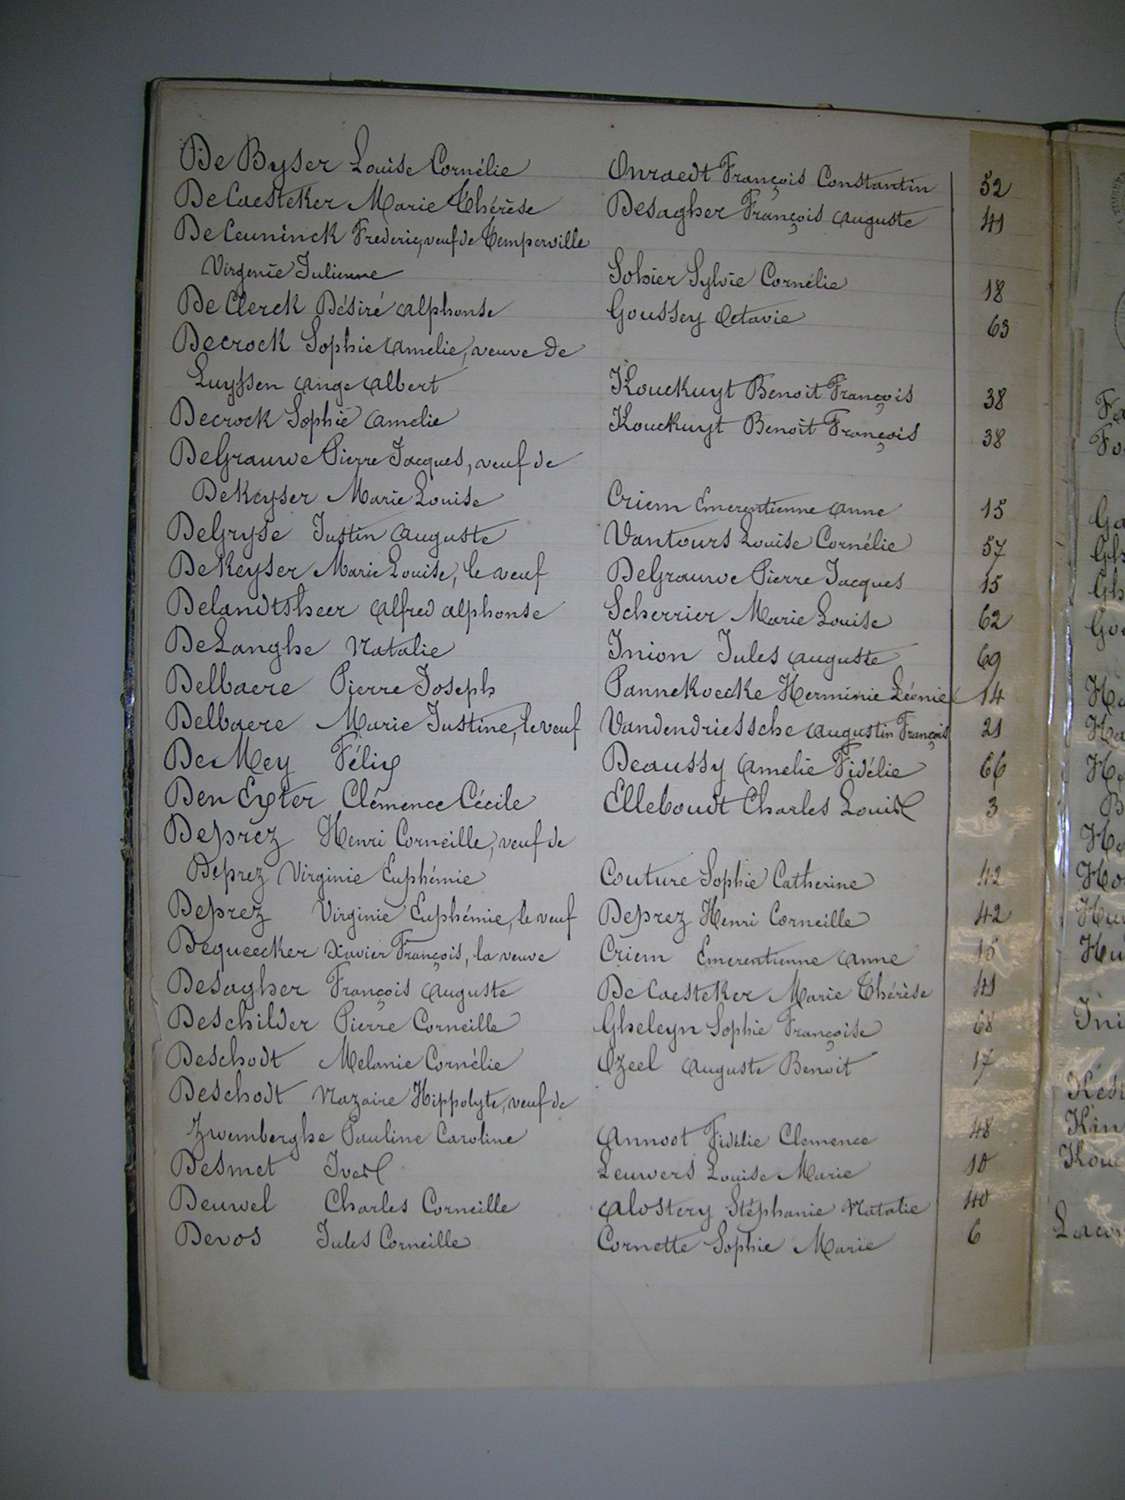 De Byser Louise Cornélie Onraedt François Constantin 52
De Caesteker Marie Thérèse Desagher François Auguste 41
De Ceuninck Frederic, veuf de Temperville
Virginie Julienne Sohier Sylvie Cornélie 18
De Clerck Désiré Alphonse Goussey Octavie 63
Decrock Sophie Amelie, veuve de
Luyssen Ange Albert Kouckuyt Benoit François 38
Decrock Sophie Amelie Kouckuyt Benoit François 38
DeGrauwe Pierre Jacques, veuf de
DeKeyser Marie Louise Criem Emerentienne Anne 15
DeGryse Justin Auguste Vantours Louise Cornélie 57
DeKeyser Marie Louise, le veuf DeGrauwe Pierre Jacques 15
Delandtsheer Alfred Alphonse Scherrier Marie Louise 62
DeLanghe Natalie Inion Jules Auguste 69
Delbaere Pierre Joseph Pannekoecke Herminie Léonie 14
Delbaere Marie Justine, le veuf Vandendriessche Augustin François 21
De Mey Félix Deaussy Amelie Fidélie 66
Den Exter Clémence Cécile Elleboudt Charles Louis 3
Deprez Henri Corneille, veuf de
Deprez Virginie Euphémie Couture Sophie Catherine 42
Deprez Virginie Euphémie, le veuf Deprez Henri Corneille 42
Dequeecker Xavier François, la veuve Criem Emerentienne Anne 15
Desagher François Auguste De Caesteker Marie Thérèse 41
Deschilder Pierre Corneille Gheleyn Sophie Françoise 68
Deschodt Melanie Cornélie Ozeel Auguste Benoit 17
Deschodt Nazaire Hippolyte, veuf de
Zwemberghe Pauline Caroline Annoot Fidélie Clemence 48
Desmet Ives Leuwers Louise Marie 10
Deuwel Charles Corneille Alostery Stéphanie Natalie 40
Devos Jules Corneille Cornette Sophie Marie 6